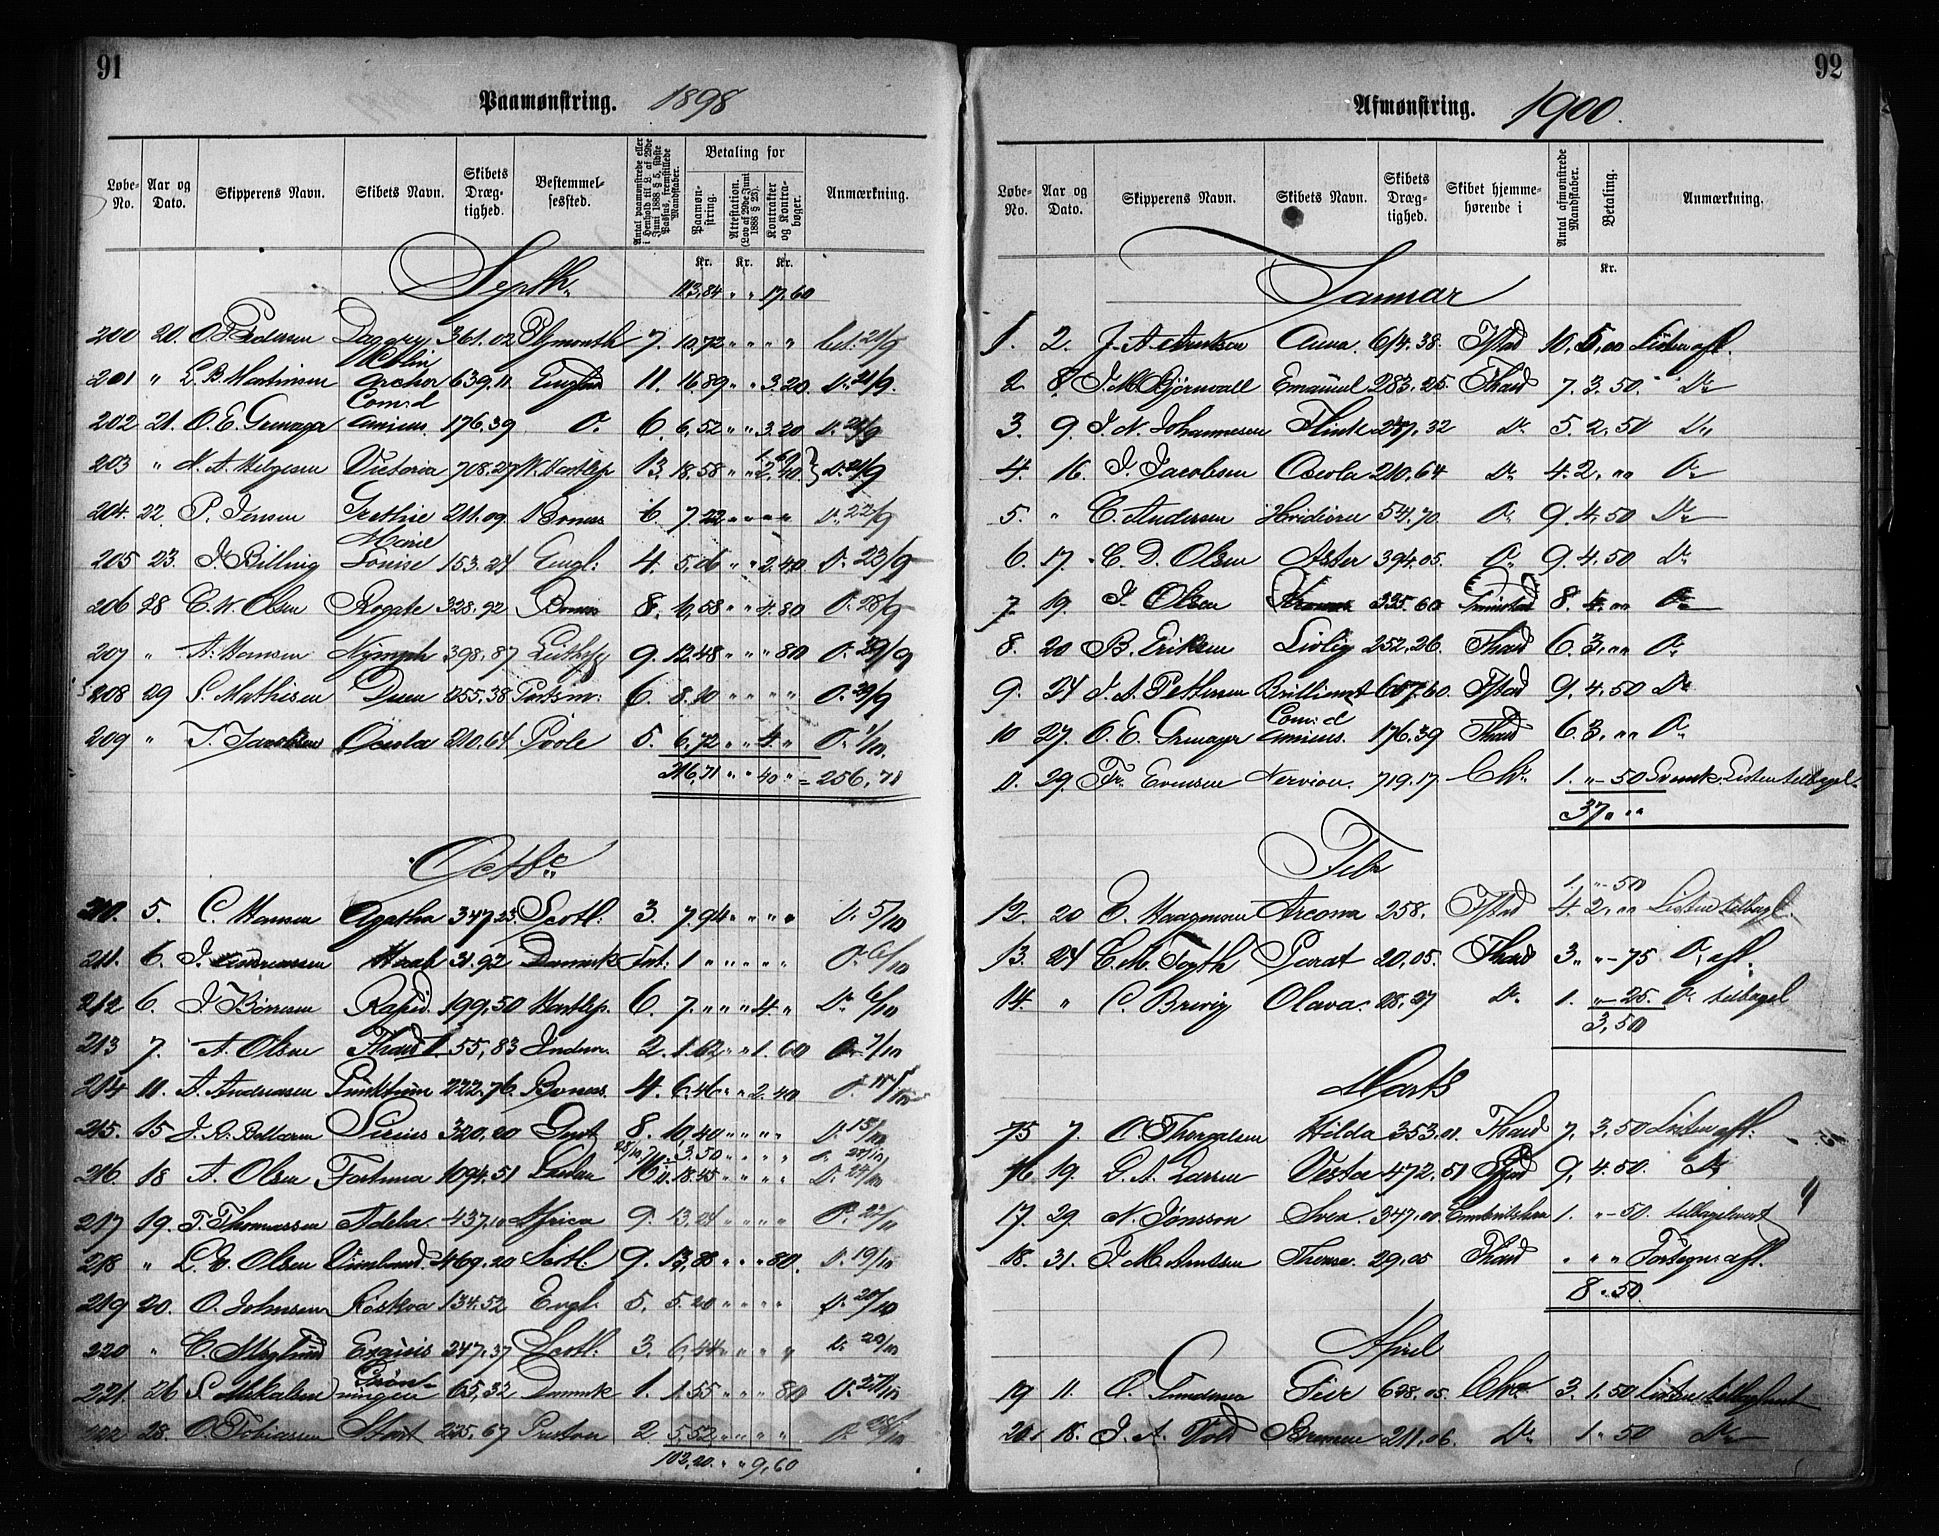 91
Paamønstring. 1898
Løbe-No. Aar og Dato. Skipperens Navn. Skibets Navn. Skibets Drægtighed. Bestemmelsessted. Antal paamønstrede eller i Henhold til L. af 29de Juni 1888 § 5, sidste Passus, fremstillede Mandskaber. Betaling for Paamønstring. Attestation. (Lov af 29de Juni 1888 § 25). Kontrakter og Kontrabøger. Anmærkning.
Kr. Kr. Kr.
Septbr. 113,84 " " 17.60
200 20. O. Pedersen Dagny 361.02 Plymouth 7. 10,72 " " " " bet. 21/9
201 " L. B. Martinsen Archer 639.11 England 11. 16.89 " " 3.20. Do 21/9.
202 21. O. E. Grmager Com.d Amicus. 176.39 Do 6. 6,52 " " 3.20 Do 21/9
203 " N. A. Helgesen Victoria 708.27 W. Hartlep. 13. 18,58 " " 1.60 2,40 Do 21/9
204. 22. P. Jensen Grethie 211.09 Boness 6. 7.22 " " " " Do 22/9
205 23. J. Billing Marie Louise 153.24 Engl: 4. 5,06 " " 2.40. Do 23/9
206 28 C. W. Olsen Rogate 328.92 Boness 8. 10,58 " " 4.80 Do 28/9
207 " A. Hansen Nymph 398.87 9. 12,48 " " " 80 Do 29/9
208 29 S. Mathisen Duen 255.38 Portsm: 6. 8.20 " " " " Do 29/9
209 " J. Jacobsen Oceola 210.64 Poole 5. 6,72 " " 4. " Do 1/10.
216,71 " " 40 " = 256,71
Octbr.
210. 5. C. Hansen Agatha 347.23 Scotl: 3. 7.94 " " " " Do 5/10
211. 6. J. Andreassen Haab 31.92 Danmark Int: 1 " " " " " Do 6/10
212 6. J. Børresen Rapid 199,50 Hartlep. 6. 7. " " " " 4. " Do 6/10
213 7. A. Olsen Thard 1. 55,83 2. 1.62 " " 1.60 Do 7/10
214 11. A. Andreasen Punktum 222.76. Boness. 4. 6.46 " " 2.40
215. 15 Sirius 320.20 8. 10,40 " " " " Do 15/10
25/10 7. 3.50 " " " "
216 18 A. Olsen Fortuna 1094.51 16 18.45 " " " " Do 24/10
217 19. T. Thomassen Adelia. 437.10 Africa 9. 13,21 " " " " Do 22/11
218 " L. E. Olsen Vinland. 469.20 Scotl: 9. 13,80 " " " 80. Do 19/10
219 20. O. Johnsen Røskva 134.52 Engl. 5. 5.20 " " " " Do 20/10
220 " C. Møglund 247.37 Scotl: 3. 6,44 " " " " Do 20/10
221. 26 S. Mikalsen Grønningen 65,32 Danmk 1. 1.55 " " " 80 Do 27/10
222 28. O. Tobiasen Start 225.67 Preston 2 5.52 " " " " Do 28/10
102,20. " " 9,60
92
Afmønstring. 1900.
Løbe-No. Aar og Dato. Skipperens Navn. Skibets Navn. Skibets Drægtighed. Skibet hjemmehørende i Antal afmønstrede Mandskaber. Betaling. Anmærkning.
Kr.
Januar
1. 2. J. A. Arntsen Anna. 614.38. Fstad 10. 5,00 Listen afl.
2 8. J. M. Bjørnvall Emanuel 283.25 Thard 7. 3.50 " Do
3. 9. J. N. Johannesen Flink 287,32 Do 5. 2.50 Do
4. 16. J. Jacobsen Oceola 210.64 Do 4. 2. " " Do
5. " C. Andersen 54,70 Do 9. 4,50 Do
6. 17. C. D. Olsen Aster 394.05. Do 9. 4.50 Do
7. 19. J. Olsen 335.60 Grimstad 8. 4.00 Do
8. 20 B. Eriksen Livlig 252,26. Thard 6. 3, " " Do
9. 24 J. A. Pettersen Brilliant 657.60 Fstad 9. 4.50 Do
10 27. O. E. Grmager Com:d Amicus. 176.39 Thard 6. 3, " " Do
11. 29. Fr. Evensen Nervion. 719.17. Chr. 1. " - 50 Svensk. Listen tilbagel.
37, " "
Febr
1. " - 50
12. 20 E. Haagensen Arcona 258. Fstad 4. 2. " " Listen tilbagel.
13. 24 C. M. Foyth Parat 20,05. Thard 3. " - 75 Do afl.
14. " C. Brevig Olava. 28,27 Do 1. " - 25. Do tilbagel
3,50
Marts
15 7. O. Thorgelsen Hilda 353.01. Thard 7. 3,50 Listen afl:
16 19. L. A. Larsen Vesta 472,51 Fstad 9. 4.50. Do
17. 29. N. Jönsson Svea. 347.00 1. " - 50. tilbageleveret
18. 31. J. M. Arntsen Thomse. 29.05 Thard " " " Fortegn. afl.
8.50.
April
19 11. O. Gundersen Geir 698.05. Chr. 3. 1.50 Listen tilbaglevert
20. 18. J. A. Vold Bremen 211.06. Do 1. 50 Do